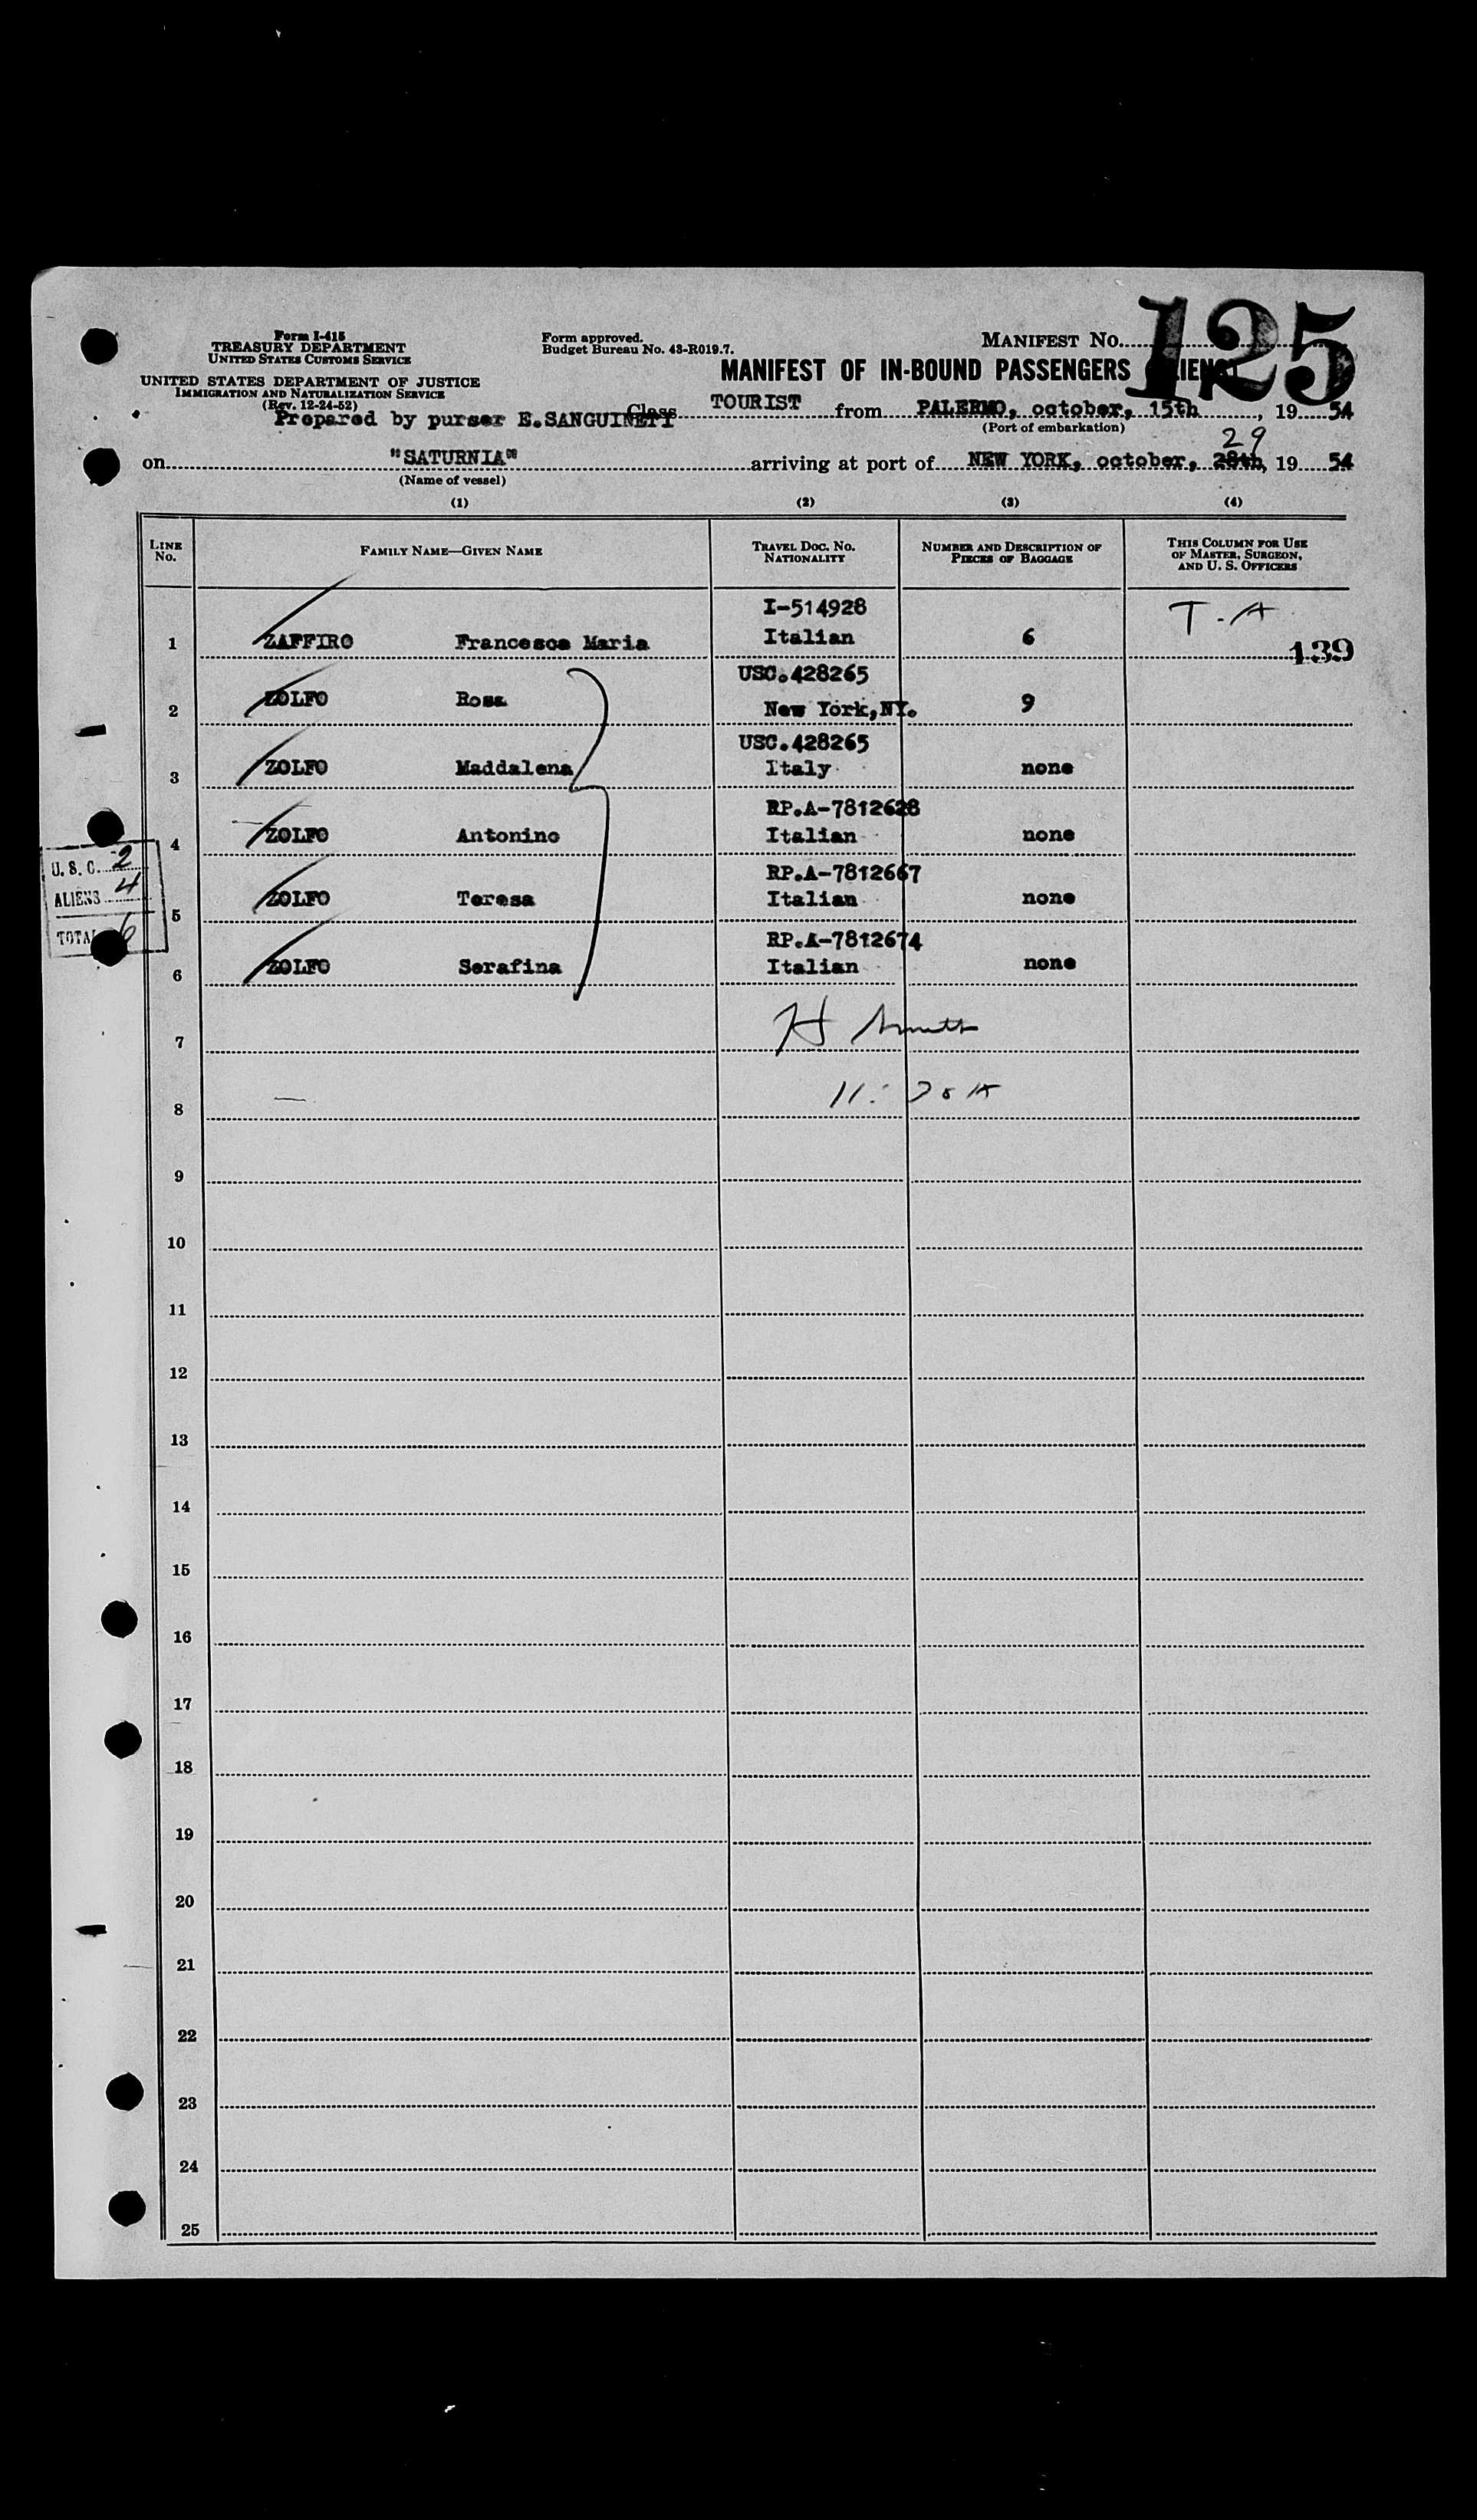 Form I-415
TREASURY DEPARTMENT
UNITED STATES CUSTOMS SERVICE
UNITED STATES DEPARTMENT OF JUSTICE
IMMIGRATION AND NATURALIZATION SERVICE
(Rev. 12-24-52)
Form approved.
Budget Bureau No. 43-R019.7.
MANIFEST NO. 125
MANIFEST OF IN-BOUND PASSENGERS
Prepared by purser E.SANGUINETI
Class TOURIST from PALERMO, october, 15th, 19 54
(Port of embarkation)
29
on "SATURNIA" arriving at port of NEW YORK, october, 28th, 19 54
(Name of vessel)
(1) (2) (3) (4)
LINE NO. FAMILY NAME—GIVEN NAME TRAVEL DOC. NO. NATIONALITY NUMBER AND DESCRIPTION OF PIECES OF BAGGAGE THIS COLUMN FOR USE OF MASTER, SURGEON, AND U. S. OFFICERS
I-514928 T-A
1 ZAFFIRO Francesca Maria Italian 6 139
USC.428265
2 ZOLFO Rosa New York,NY. 9
USC.428265
3 ZOLFO Maddalena Italy none
RP.A-7812628
4 ZOLFO Antonino Italian none
RP.A-7812667
5 ZOLFO Teresa Italian none
RP.A-7812674
6 ZOLFO Serafina Italian none
U. S. C. 2
ALIENS 4
TOTAL 6
7 H Smith
8
9
10
11
12
13
14
15
16
17
18
19
20
21
22
23
24
25